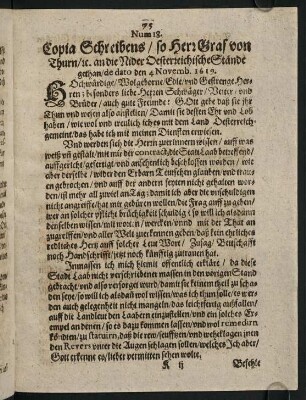 75
Num 18.
Copia Schreibens / so Herr Graf von
Thurn/ ꝛc. an die Nider Oesterreichische Stände
gethan/ de dato den 4 Novemb. 1619.
HOchwürdige/ Wolgeborne/ Edle/ und Gestrenge Her-
ren: besonders liebe Herren Schwäger/ Veter/ und
Brüder/ auch gute Freunde: GOtt gebe daß sie ihr
Thun und wesen also anstellen/ Damit sie dessen Ehr und Lob
haben/ wie wol und treulich ichs mit dem Land Oesterreich
gemeint/ das habe ich mit meinen Diensten erwiesen.
Und werden sich die Herrn zuerinnern wissen/ auff was
weiß uñ gestalt/ mit mir der contract die Statt Laab betreffend/
auffgericht/ gefertigt/ und ansehenlich beschlossen worden/ wie
aber derselbe/ wider den Erbarn Teutschen glauben/ und trauen
gebrochen/ und auff der andern seyten nicht gehalten wor-
den/ ist mehr als zuviel am Tag: damit ich aber die unschuldigen
nicht angreiffe/ hat mir gebüren wöllen/ die Frag auff zu geben/
wer an solcher pflicht brüchigkeit schuldig: so will ich alsdann
denselben wissen/ mit worten/ wercken/ und mit der That an
zugreiffen/ und aller Welt zuerkennen geben/ daß kein ehrliches
redliches Hertz auff solcher Leut Wort/ Zusag/ Petschafft
noch Handschrifft/ jetzt noch künfftig zutrauen hat.
Inmassen ich mich hiemit öffentlich erkläre/ da diese
Stadt Laab nicht verschriebener massen in den vorigen Stand
gebracht/ und also versorget wurd/ damit sie keinem theil zu scha-
den sey/ so will ich alsdañ wol wissen/ was ich thun solle/ es wür-
den auch gelegenheit nicht mangeln/ das Frühzeitig außfallen/
auff die Landleut den Laabern einzustellen/ und ein solches Er-
empel an denen/ so es dazu kommen lassen/ und wol remedirn
könden/ zu statuirn/ daß die ren/ seufftzen und wehklagen/ jnen
den Revers unter die Augen schlagen sollen/ welches Ich aber/
Gott erkenne es/ lieber vermitten sehen wolte.
K ij
Beschlie